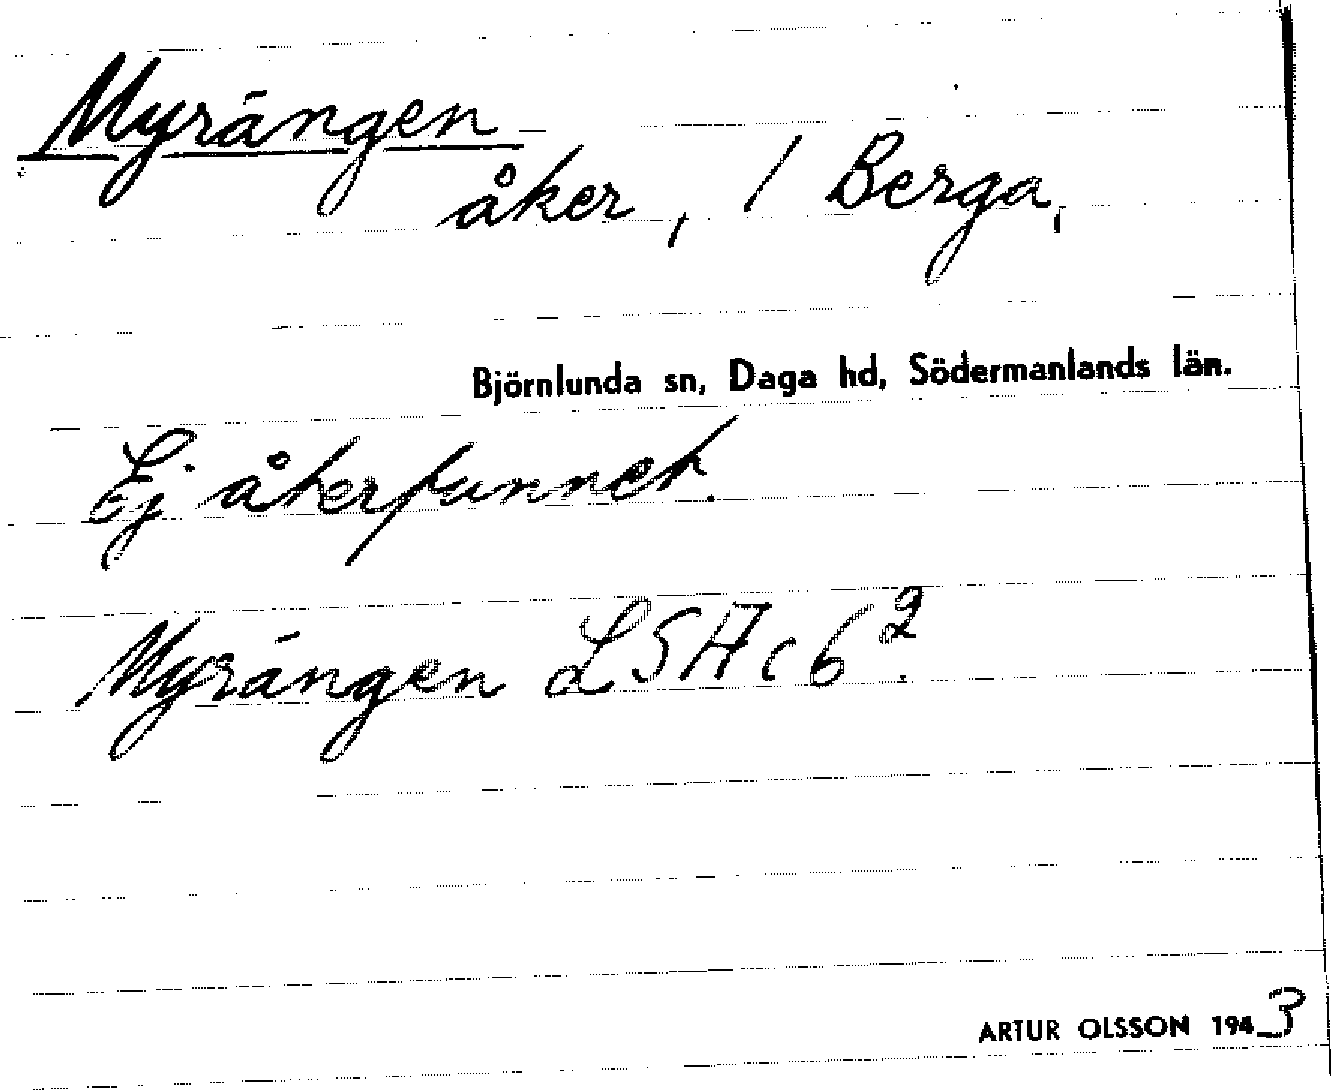 Myrängen
åker, / Berga,
Björnlunda sn, Daga hd, Södermanlands län.
Ej återfunnet.
Myrängen LSA c 6².
ARTUR OLSSON 1943